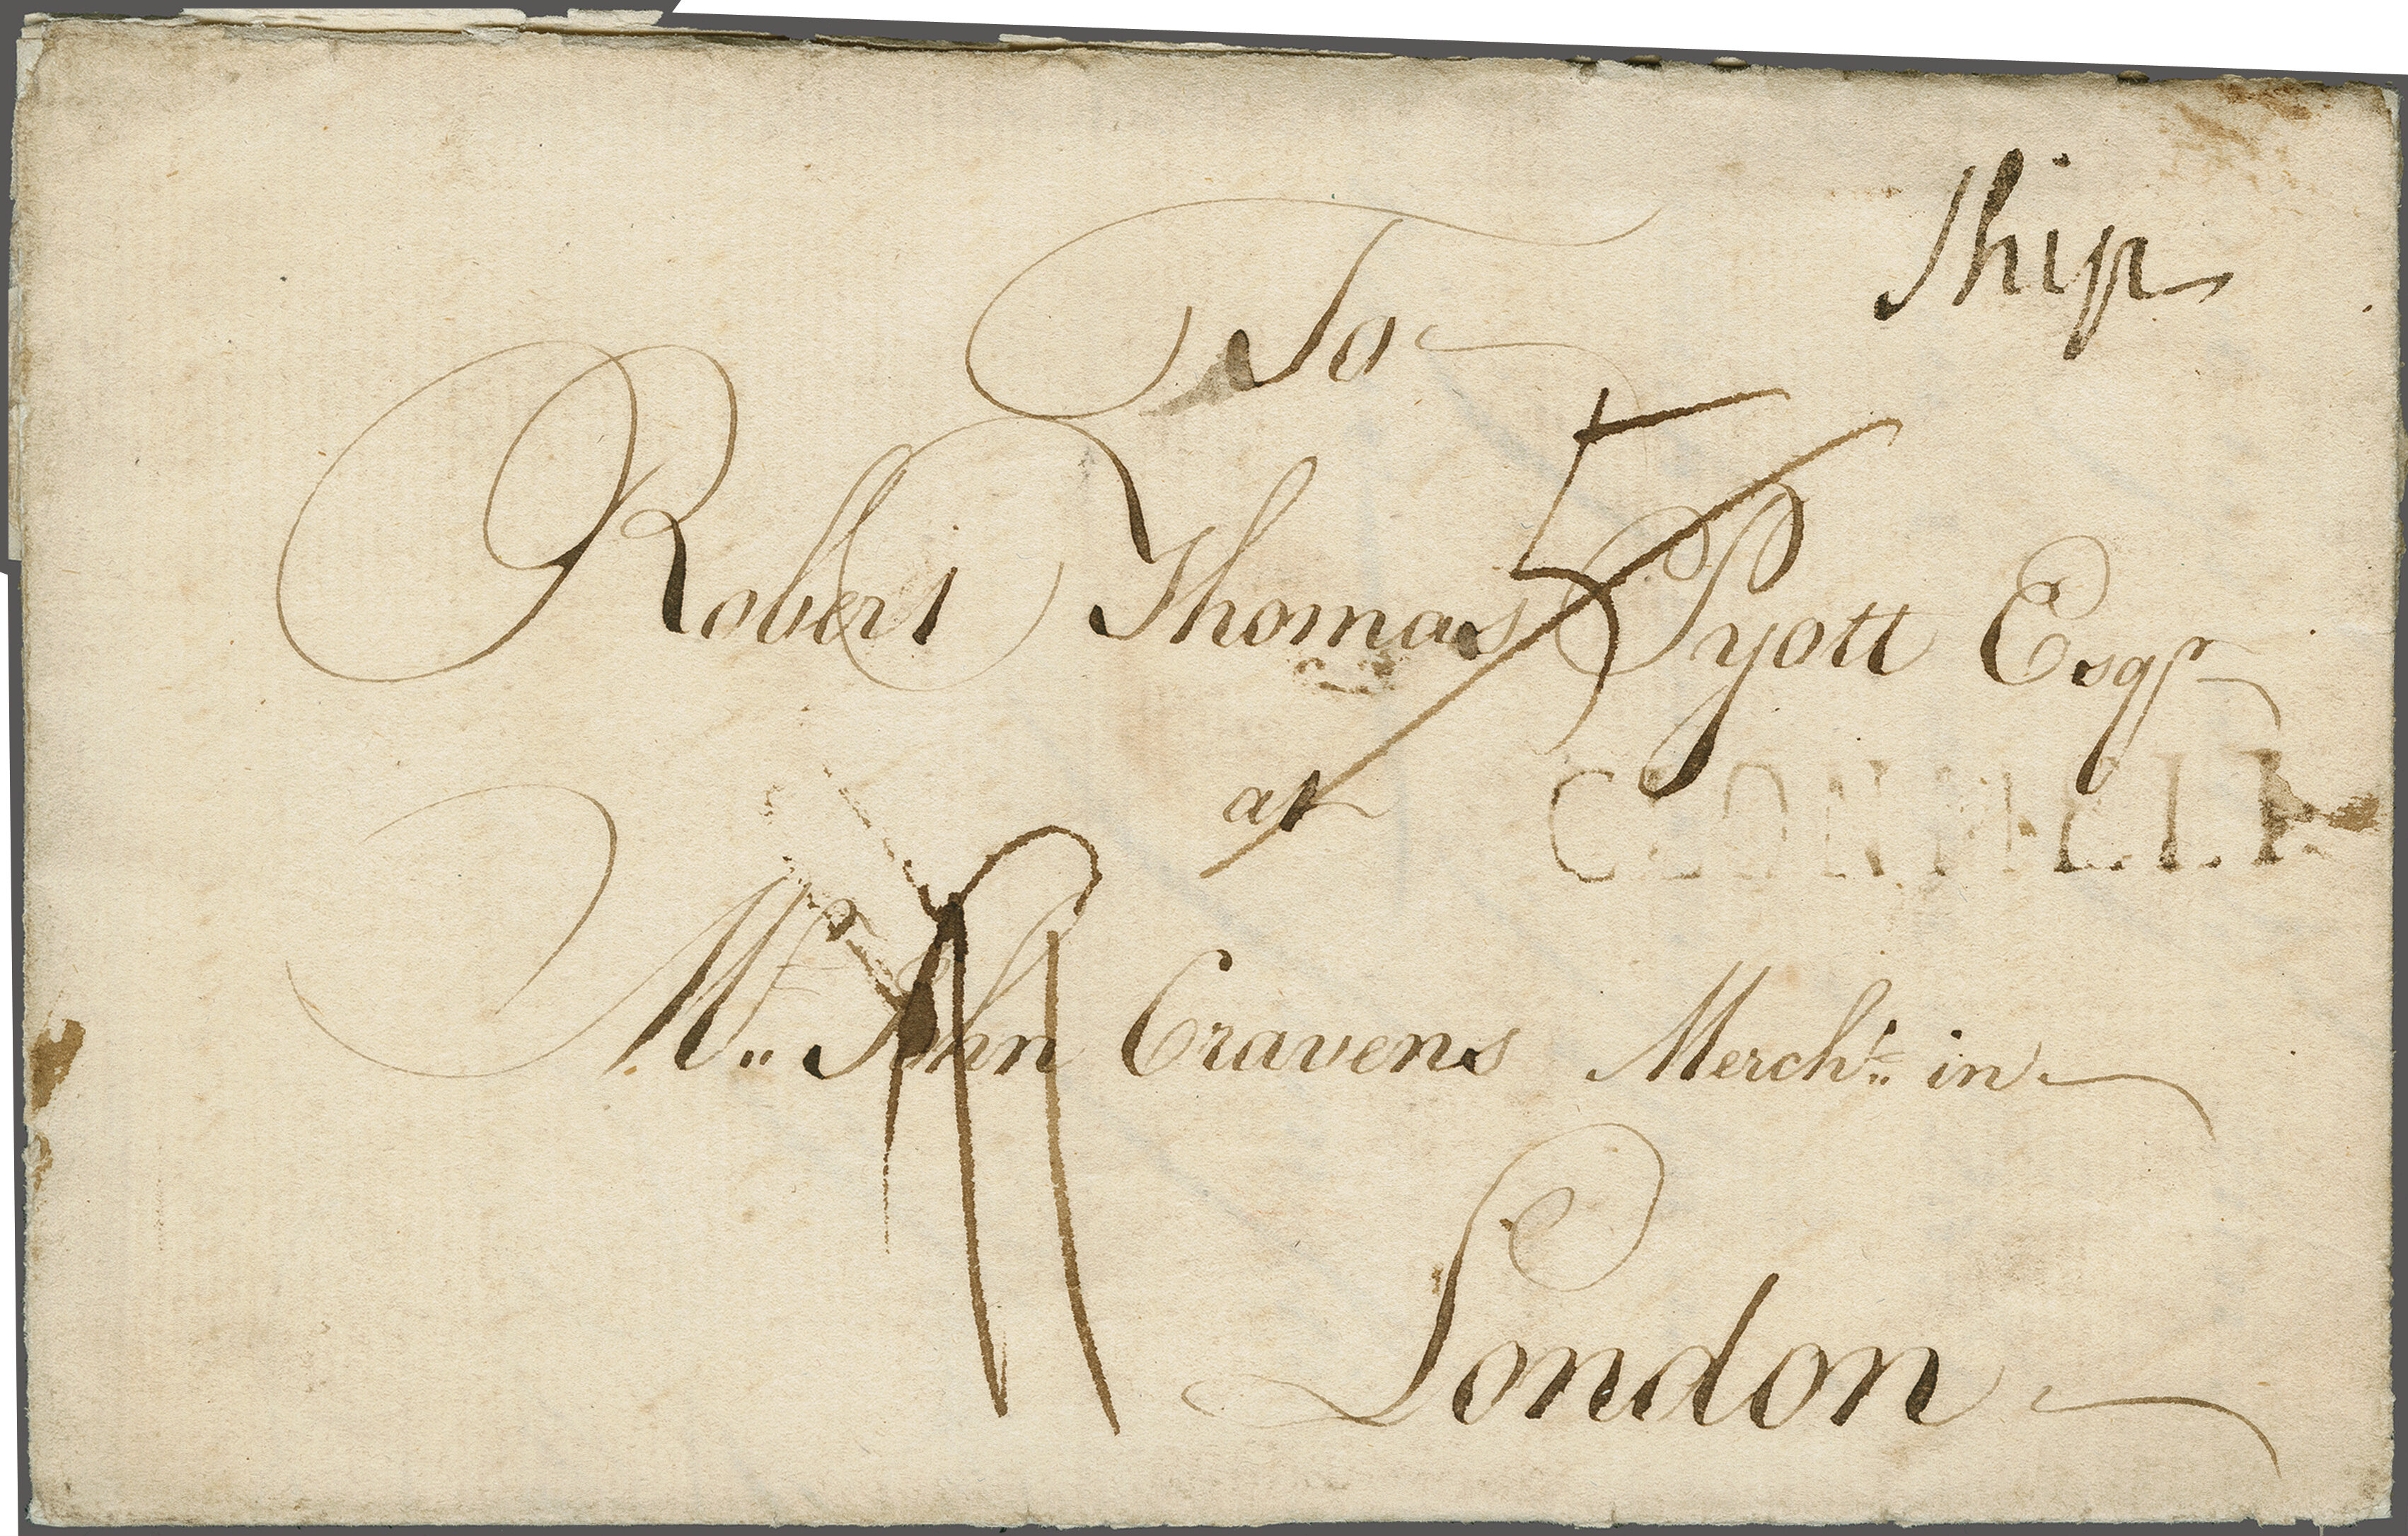 Ship
To
5
Robert Thomas Pyott Esqr
at
CLONMELL
Mr John Cravens Mercht in
London